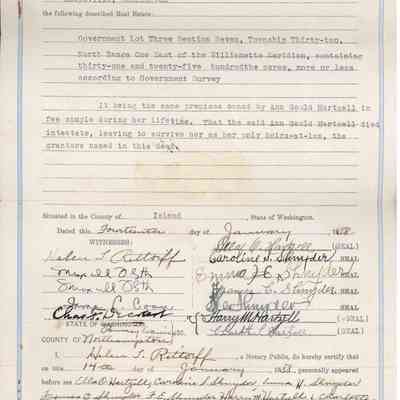 the following described Real Estate:
Government Lot Three Section Seven, Township Thirty-two,
North Range One East of the Willamette Meridian, containing
thirty-one and twenty-five hundredths acres, more or less
according to Government Survey
It being the same premises owned by Ann Gould Hartzell in
fee simple during her lifetime. That the said Ann Gould Hartzell died
intestate, leaving to survive her as her only heirs-at-law, the
grantors named in this deed.
Situated in the County of Island, State of Washington.
Dated this Fourteenth day of January 1918
WITNESSES:
Helen L. Rittoff Ella O. Hartzell (SEAL)
Caroline S. Shnyder (SEAL)
Emma H. Shnyder (SEAL)
(SEAL)
Shnyder (SEAL)
Harry M. Hartzell (SEAL)
(SEAL)
STATE OF WASHINGTON
Pennsylvania
COUNTY OF Northampton
I, Helen L. Rittoff a Notary Public, do hereby certify that
on this 14th day of January 1918, personally
appeared before me Ella O. Hartzell, Caroline S. Shnyder, Emma H. Shnyder